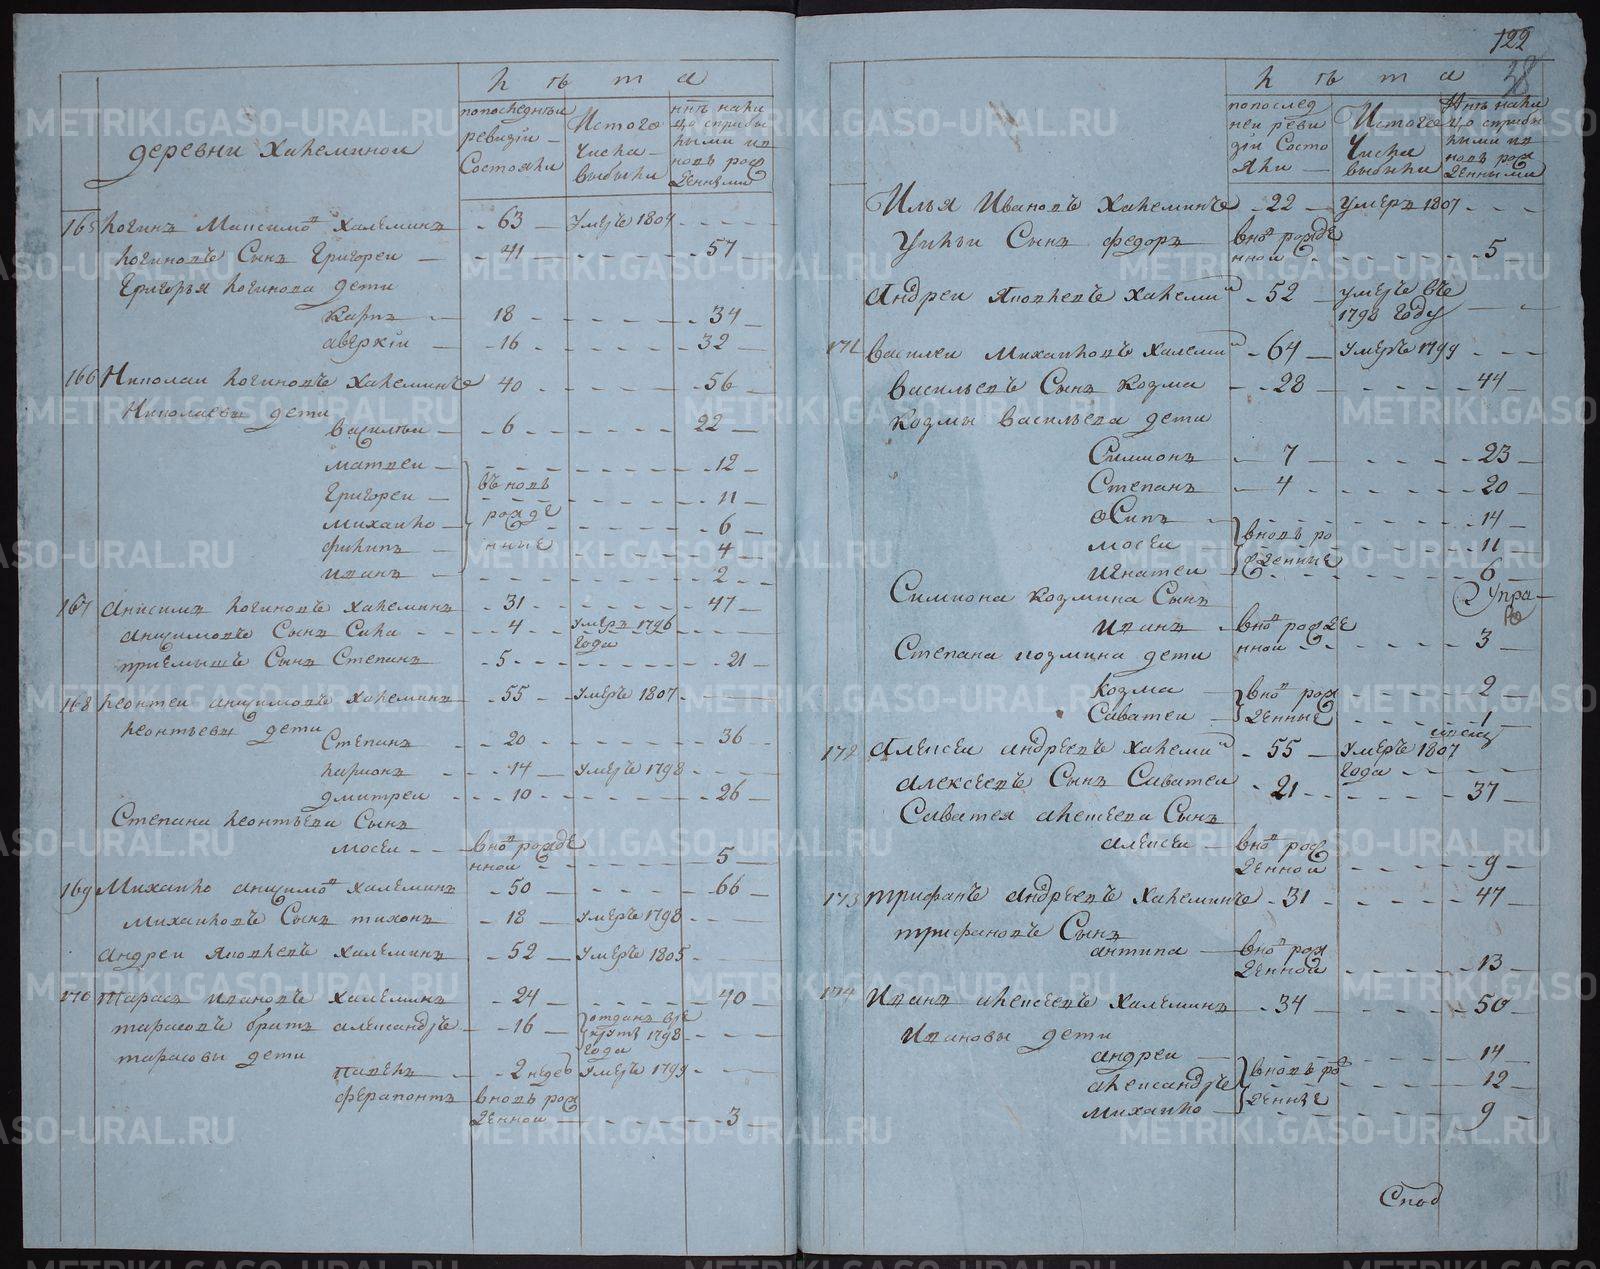 122
38
лѣта
деревни Халеминой
попоследнеи ревизіи Состояли
Истого Числа выбыли
ннѣ нали цо сприбы лыми и в новь рож денными
165 Логинъ Максимовъ Халеминъ 63 Умеръ 1807
Логиновъ Сынъ Григореи 41 57
Григорья Логинова дети
Карпъ 18 34
аверкіи 16 32
166 Николаи Логиновъ Халеминъ 40 56
Николаевы дети
василеи 6 22
матвеи 12
Григореи въ новь 11
михаило рожде 6
филипъ нные 4
иванъ 2
167 Анисимъ Логиновъ Халеминъ 31 47
анисимовъ Сынъ Сила 4 умеръ 1796 Года
приемышъ Сынъ Степанъ 5 21
168 Леонтеи анисимовъ Халеминъ 55 Умеръ 1807
Леонтьевы дети
Степанъ 20 36
ларионъ 14 Умеръ 1798
дмитреи 10 26
Степана Леонтьева Сынъ
мосеи вновь рожде нной 5
169 Михаило анисимовъ Халеминъ 50 66
михаиловъ Сынъ тихонъ 18 Умеръ 1798
Андреи Яковлевъ Халеминъ 52 Умеръ 1805
170 Тарасъ Ивановъ Халеминъ 24 40
тарасовъ братъ александръ 16 отданъ вре круты 1798 Года
тарасовы дети
павелъ 2 недевъ Умеръ 1799
ферапонтъ вновь рож денной 3
лѣта
попослед неи реви зіи Состо яли
Истого Числа выбыли
ннѣ нали цо сприбы лыми и в новь рож денными
Илья Ивановъ Халеминъ 22 умеръ 1807
Ульи Сынъ федоръ вновь рожде нной 5
Андреи Яковлевъ Халеминъ 52 умеръ въ 1798 Году
171 Василеи Михаиловъ Халеминъ 64 Умеръ 1799
Васильевъ Сынъ Козма 28 44
Козмы Васильева дети
Симионъ 7 23
Степанъ 4 20
осипъ 14
мосеи вновь ро 11
игнатеи жденные 6
Симиона Козмина Сынъ
иванъ вновь рожде нной 3
Степана козмина дети
Козма вновь рож 2
Саватеи денные 1
месец
172 Алексеи андреевъ Халеминъ 55 Умеръ 1807 Года
алексеевъ Сынъ Саватеи 21 37
Саватея алексеева Сынъ
алексеи вновь рож денной 9
173 трифанъ андреевъ Халеминъ 31 47
трифановъ Сынъ
антипа вновь рож денной 13
174 Иванъ алексеевъ Халеминъ 34 50
Ивановы дети
андреи 14
александръ вновь рож 12
михаило денные 9
METRIKI.GASO-URAL.RU